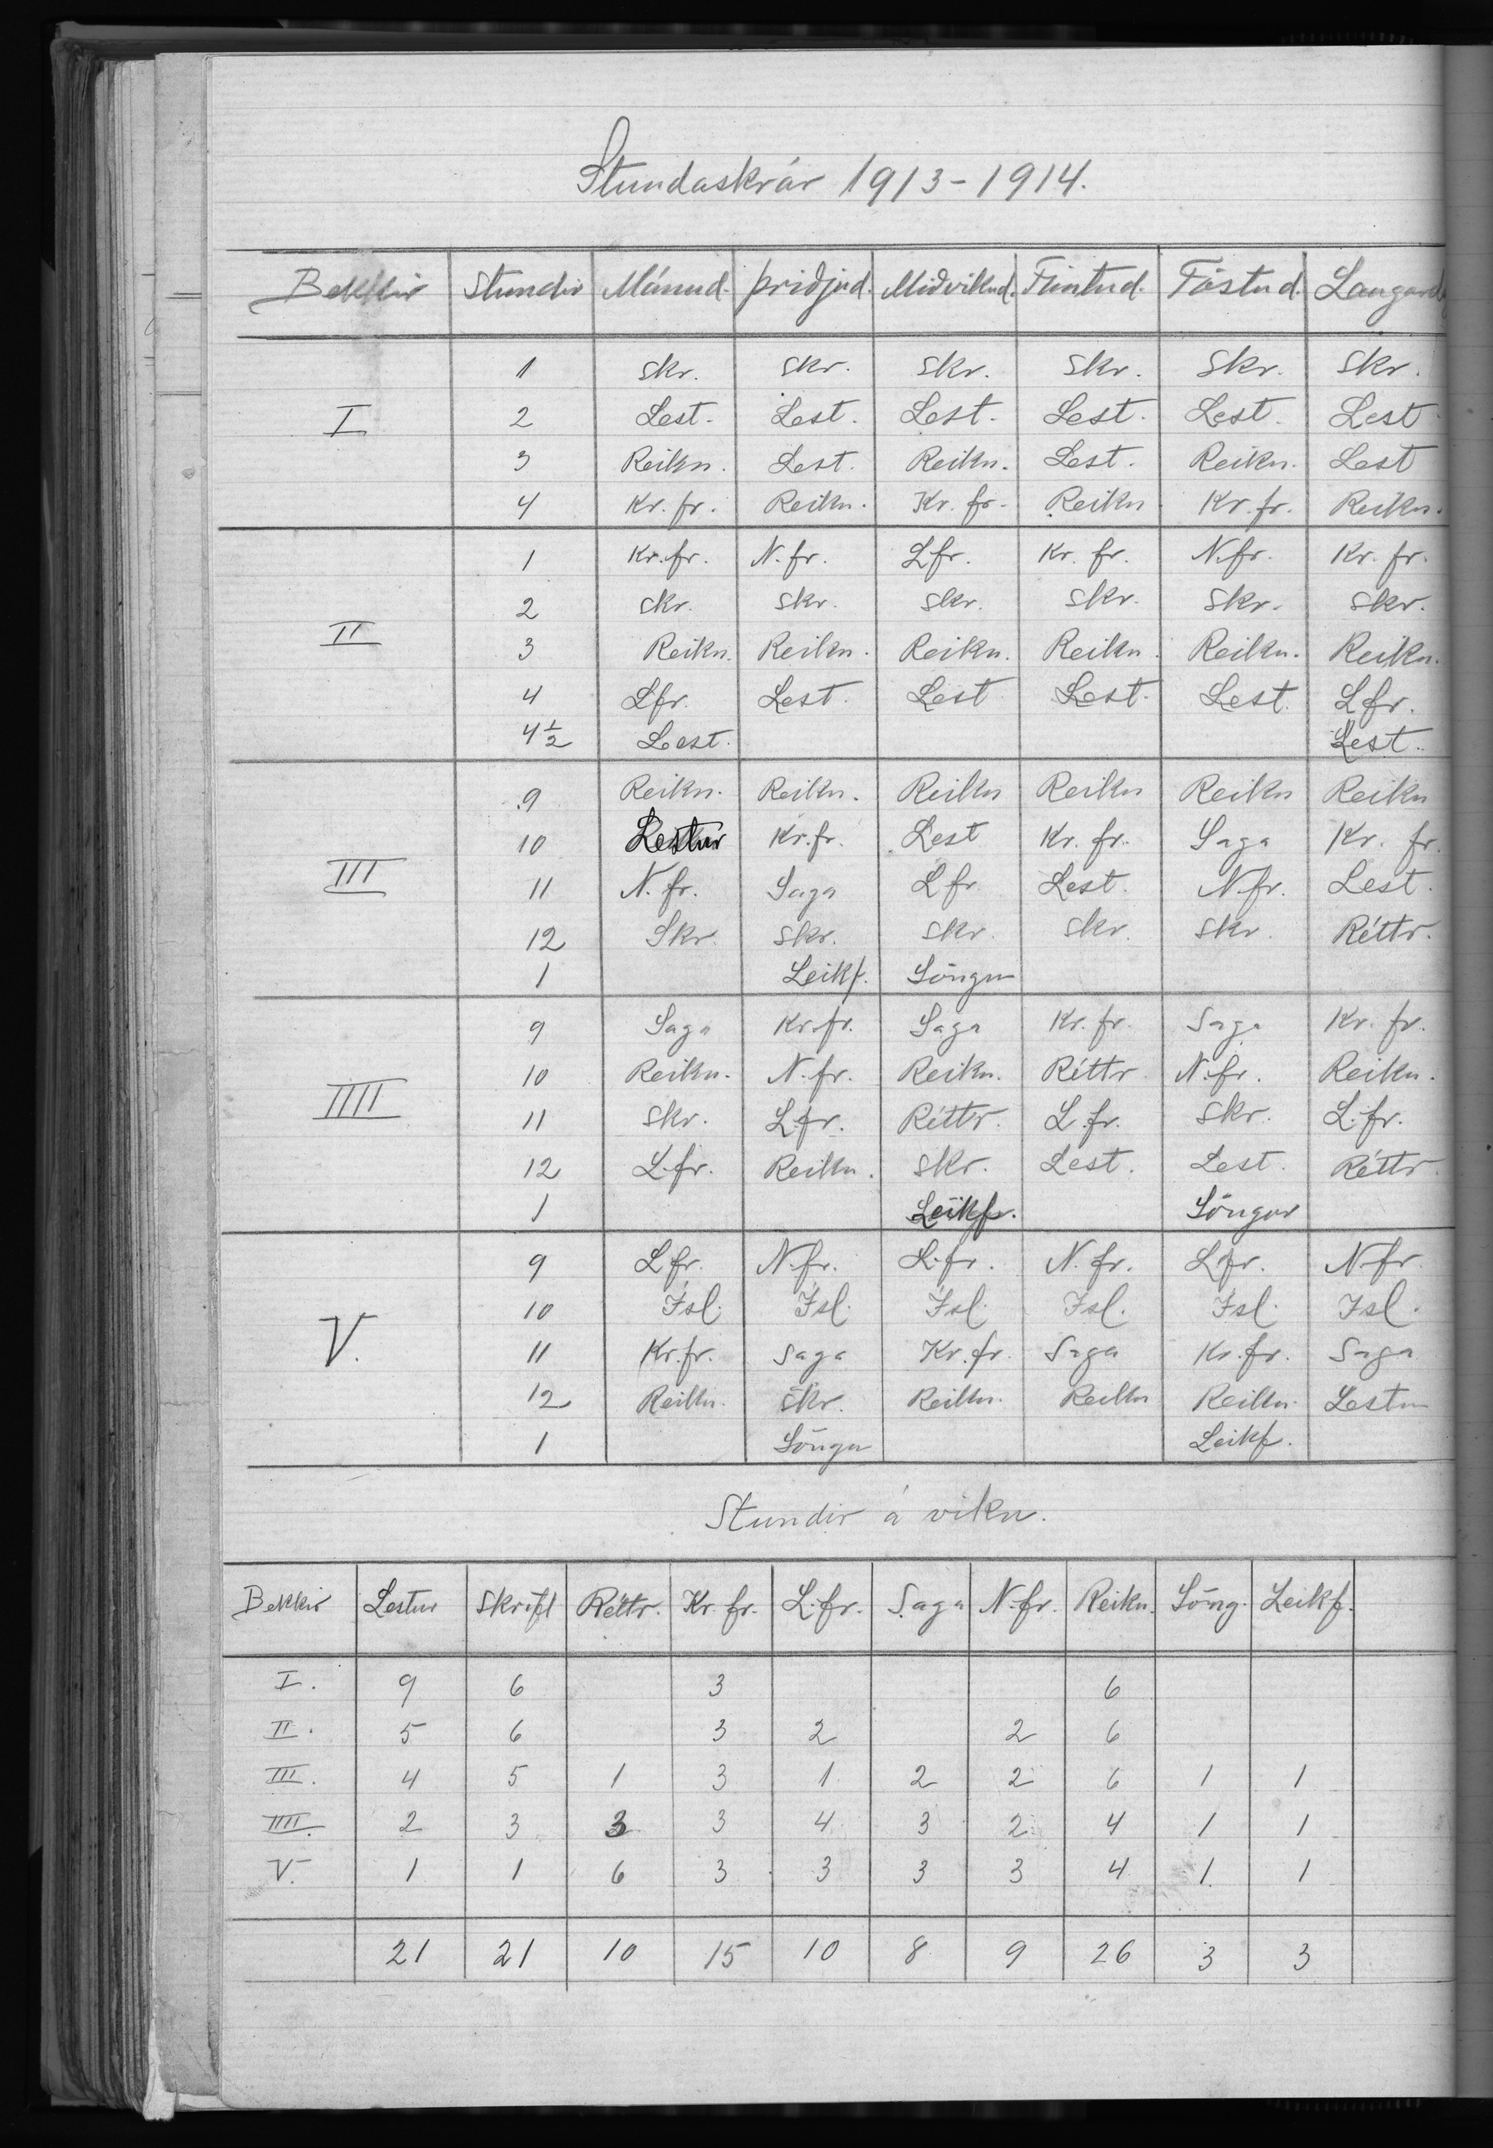 Stundaskrár 1913-1914.
Bekkir Stundir Mánud. Þriðjud. Miðvikud. Fimtud. Föstud. Laugard
1 Skr. Skr. Skr. Skr. Skr. Skr.
I 2 Lest. Lest. Lest. Lest. Lest. Lest
3 Reikn. Lest. Reikn. Lest. Reikn. Lest
4 Kr. fr. Reikn. Kr. fr. Reikn Kr. fr. Reikn.
1 Kr. fr. N. fr. L fr. Kr. fr. N. fr. Kr. fr.
2 skr. skr. skr. skr. skr. skr.
II 3 Reikn. Reikn. Reikn. Reikn. Reikn. Reikn.
4 L fr. Lest. Lest Lest. Lest. L fr.
4 1/2 Lest. Lest.
9 Reikn. Reikn. Reikn Reikn Reikn Reikn
10 Lestur Kr. fr. Lest Kr. fr. Saga Kr. fr.
III 11 N. fr. Saga L fr Lest. N. fr. Lest.
12 Skr. skr. skr. skr. skr. Réttr.
1 Leikf. Söngur
9 Saga Kr. fr. Saga Kr. fr. Saga Kr. fr.
10 Reikn. N. fr. Reikn. Réttr N. fr. Reikn.
IIII 11 skr. L. fr. Réttr. L. fr. skr. L. fr.
12 L. fr. Reikn. skr. Lest. Lest. Réttr.
1 Leikf. Söngur
9 L fr. N. fr. L. fr. N. fr. L fr. N. fr
10 Ísl. Ísl. Ísl. Ísl. Ísl. Ísl.
V. 11 Kr. fr. Saga Kr. fr. Saga Kr. fr. Saga
12 Reikn. skr. Reikn. Reikn Reikn. Lestur
1 Söngur Leikf.
Stundir á viku.
Bekkir Lestur Skrift Réttr. Kr. fr. L. fr. Saga N. fr. Reikn. Söng. Leikf.
I. 9 6 3 6
II. 5 6 3 2 2 6
III. 4 5 1 3 1 2 2 6 1 1
IIII. 2 3 3 3 4 3 2 4 1 1
V. 1 1 6 3 3 3 3 4 1 1
21 21 10 15 10 8 9 26 3 3